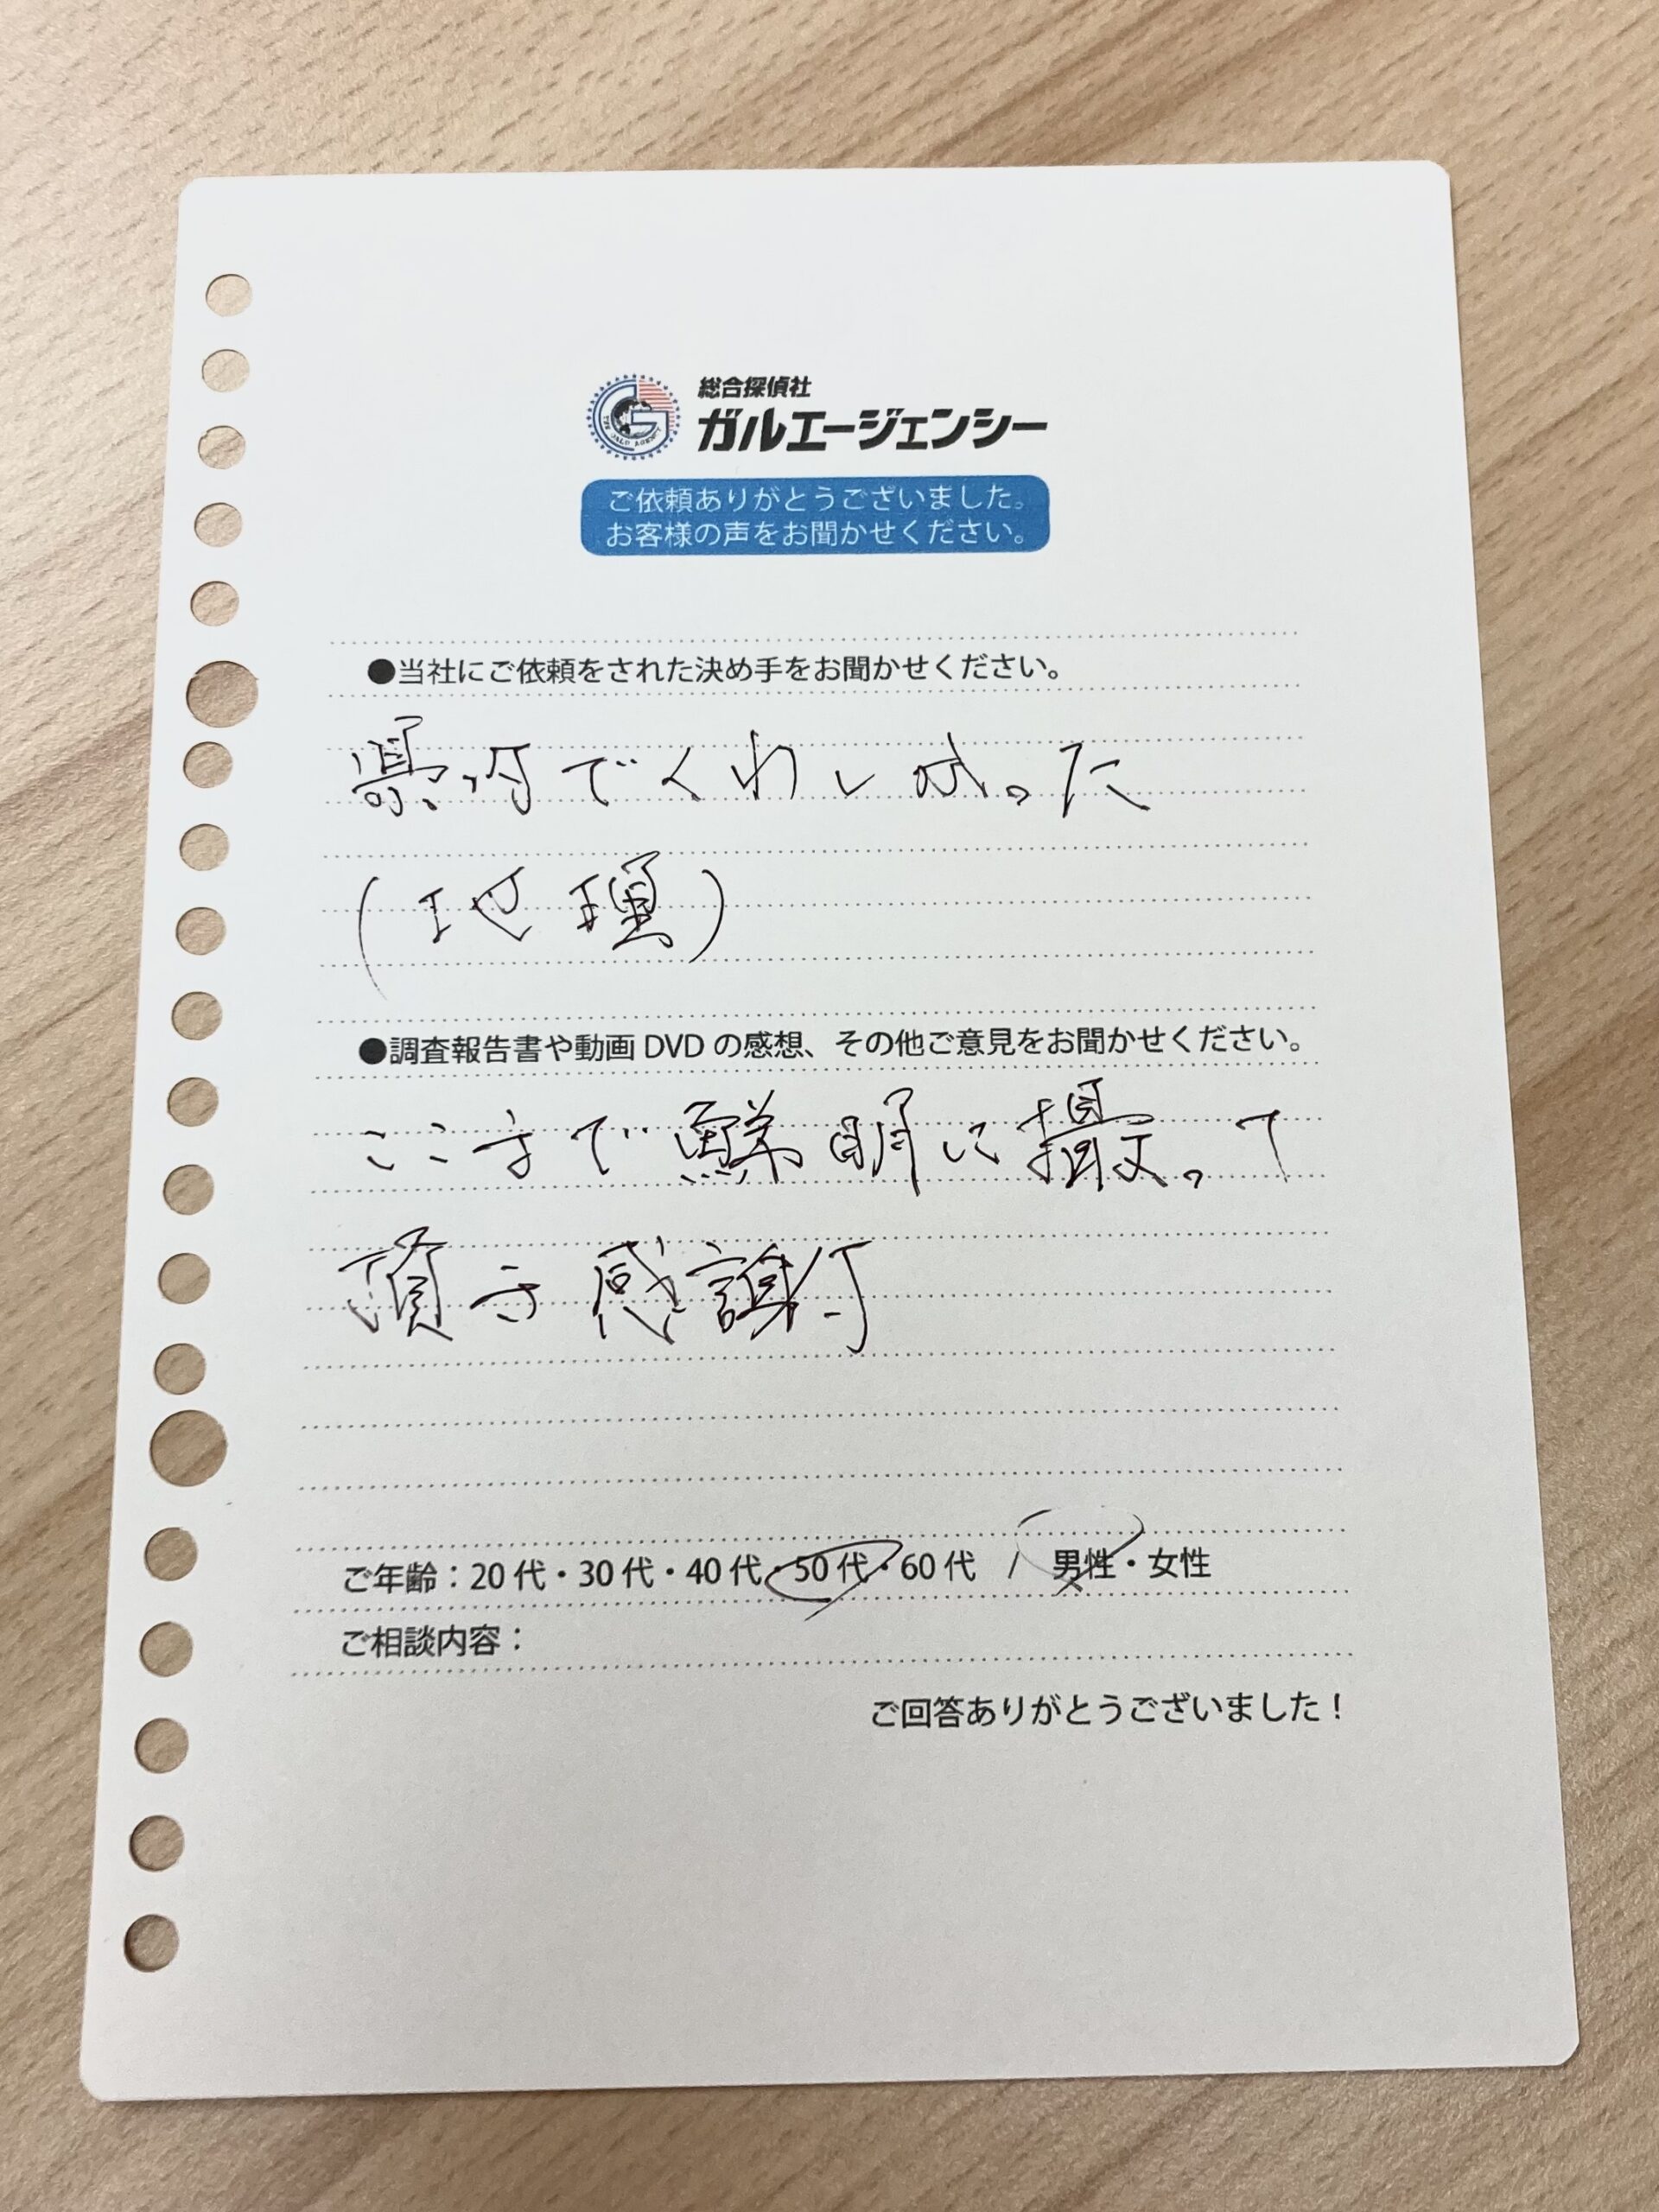 総合探偵社
ガルエージェンシー
ご依頼ありがとうございました。
お客様の声をお聞かせください。
●当社にご依頼をされた決め手をお聞かせください。
県内でくわしかった
(地理)
●調査報告書や動画DVDの感想、その他ご意見をお聞かせください。
ここまで鮮明に撮って
頂き感謝
ご年齢：20代・30代・40代・50代・60代 / 男性・女性
ご相談内容：
ご回答ありがとうございました！